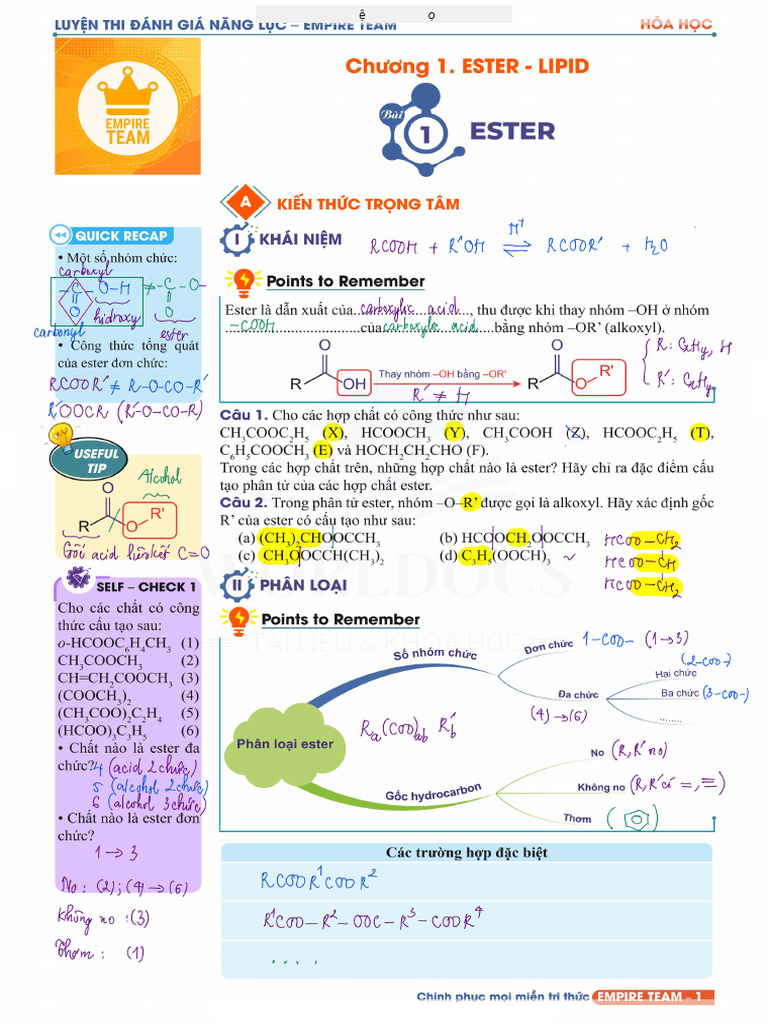 ệ ọ
LUYỆN THI ĐÁNH GIÁ NĂNG LỰC – EMPIRE TEAM HÓA HỌC
EMPIRE TEAM
Chương 1. ESTER - LIPID
Bài 1 ESTER
A KIẾN THỨC TRỌNG TÂM
QUICK RECAP
• Một số nhóm chức:
carboxyl
–C–O–H ≠ –C–O–
O O
hidroxy
carbonyl ester
• Công thức tổng quát
của ester đơn chức:
RCOOR' ≠ R-O-CO-R'
R'OOCR (R'-O-CO-R)
USEFUL TIP
Alcohol
O
R O R'
Gốc acid liên kết C=O
SELF – CHECK 1
Cho các chất có công
thức cấu tạo sau:
o-HCOOC₆H₄CH₃ (1)
CH₃COOCH₃ (2)
CH=CH₂COOCH₃ (3)
(COOCH₃)₂ (4)
(CH₃COO)₂C₂H₄ (5)
(HCOO)₃C₃H₅ (6)
• Chất nào là ester đa
chức? 4 (acid 2 chức)
5 (alcohol 2 chức)
6 (alcohol 3 chức)
• Chất nào là ester đơn
chức?
1 → 3
No: (2); (4) → (6)
Không no: (3)
Thơm: (1)
I KHÁI NIỆM
RCOOH + R'OH ⇌ RCOOR' + H₂O
H⁺
Points to Remember
Ester là dẫn xuất của carboxylic acid, thu được khi thay nhóm –OH ở nhóm
-COOH của carboxylic acid bằng nhóm –OR' (alkoxyl).
O O
R OH Thay nhóm –OH bằng –OR' R O R'
R' ≠ H
R: CxHy, H
R': CxHy
Câu 1. Cho các hợp chất có công thức như sau:
CH₃COOC₂H₅ (X), HCOOCH₃ (Y), CH₃COOH (Z), HCOOC₂H₅ (T),
C₆H₅COOCH₃ (E) và HOCH₂CH₂CHO (F).
Trong các hợp chất trên, những hợp chất nào là ester? Hãy chỉ ra đặc điểm cấu
tạo phân tử của các hợp chất ester.
Câu 2. Trong phân tử ester, nhóm –O–R' được gọi là alkoxyl. Hãy xác định gốc
R' của ester có cấu tạo như sau:
(a) (CH₃)₂CHOOCCH₃ (b) HCOOCH₂OOCCH₃
(c) CH₃OOCCH(CH₃)₂ (d) C₃H₅(OOCH)₃
HCOO-CH₂
HCOO-CH
HCOO-CH₂
II PHÂN LOẠI
WORLDOCS
TÀI LIỆU & KHÓA HỌC
Points to Remember
Phân loại ester
Số nhóm chức
Đơn chức 1-COO- (1→3)
Đa chức (4)→(6)
Hai chức (2-COO-)
Ba chức (3-COO-)
........
Ra(COO)ab R'b
Gốc hydrocarbon
No (R, R' no)
Không no (R, R' có =, ≡)
Thơm
Các trường hợp đặc biệt
RCOOR¹COOR²
R¹COO-R²-OOC-R³-COOR⁴
.....
Chinh phục mọi miền tri thức EMPIRE TEAM - 1